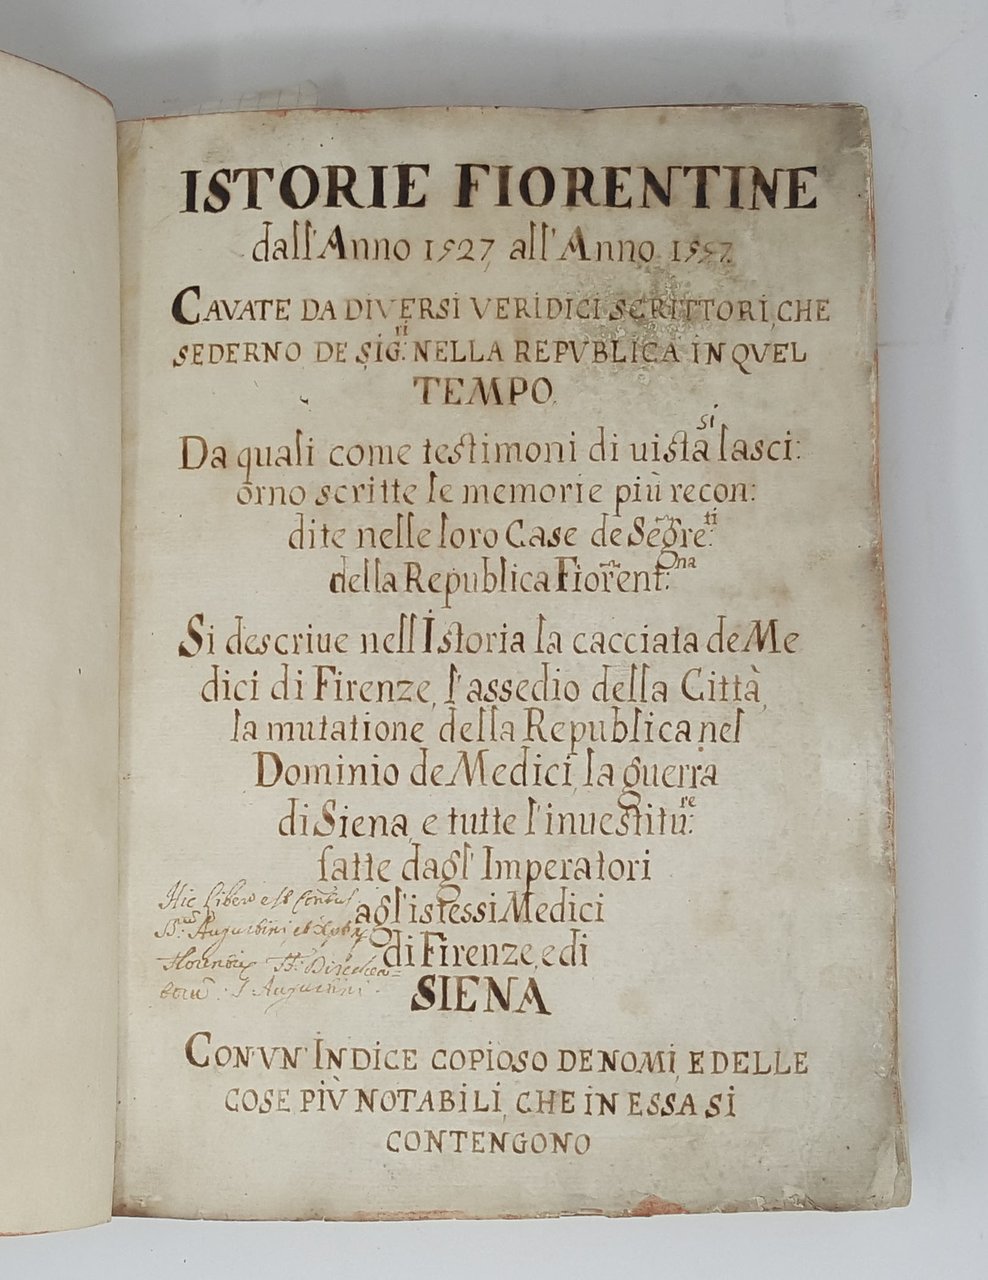 ISTORIE FIORENTINE
dall'Anno 1527 all'Anno 1557
CAVATE DA DIVERSI VERIDICI SCRITTORI, CHE
SEDERNO DE' SIG:ri NELLA REPVBLICA IN QVEL
TEMPO.
Da quali come testimoni di uista si lasci:
orno scritte le memorie più recon:
dite nelle loro Case de Segre:ti
della Republica Fiorent:na
Si descriue nell'Istoria la cacciata de Me
dici di Firenze, l'assedio della Città,
la mutatione della Republica nel
Dominio de Medici, la guerra
di Siena, e tutte l'inuestitu:re
fatte dagl'Imperatori
agl'istessi Medici
di Firenze, e di
SIENA
Hic Liber est
Augustini
CON VN' INDICE COPIOSO DE NOMI, E DELLE
COSE PIÙ NOTABILI, CHE IN ESSA SI
CONTENGONO